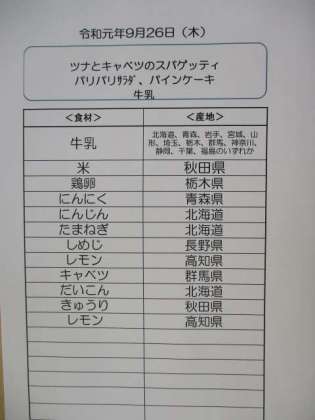 令和元年9月26日（木）
ツナとキャベツのスパゲッティ
パリパリサラダ、パインケーキ
牛乳
＜食材＞ ＜産地＞
牛乳 北海道、青森、岩手、宮城、山
形、埼玉、栃木、群馬、神奈川、
静岡、千葉、福島のいずれか
米 秋田県
鶏卵 栃木県
にんにく 青森県
にんじん 北海道
たまねぎ 北海道
しめじ 長野県
レモン 高知県
キャベツ 群馬県
だいこん 北海道
きゅうり 秋田県
レモン 高知県